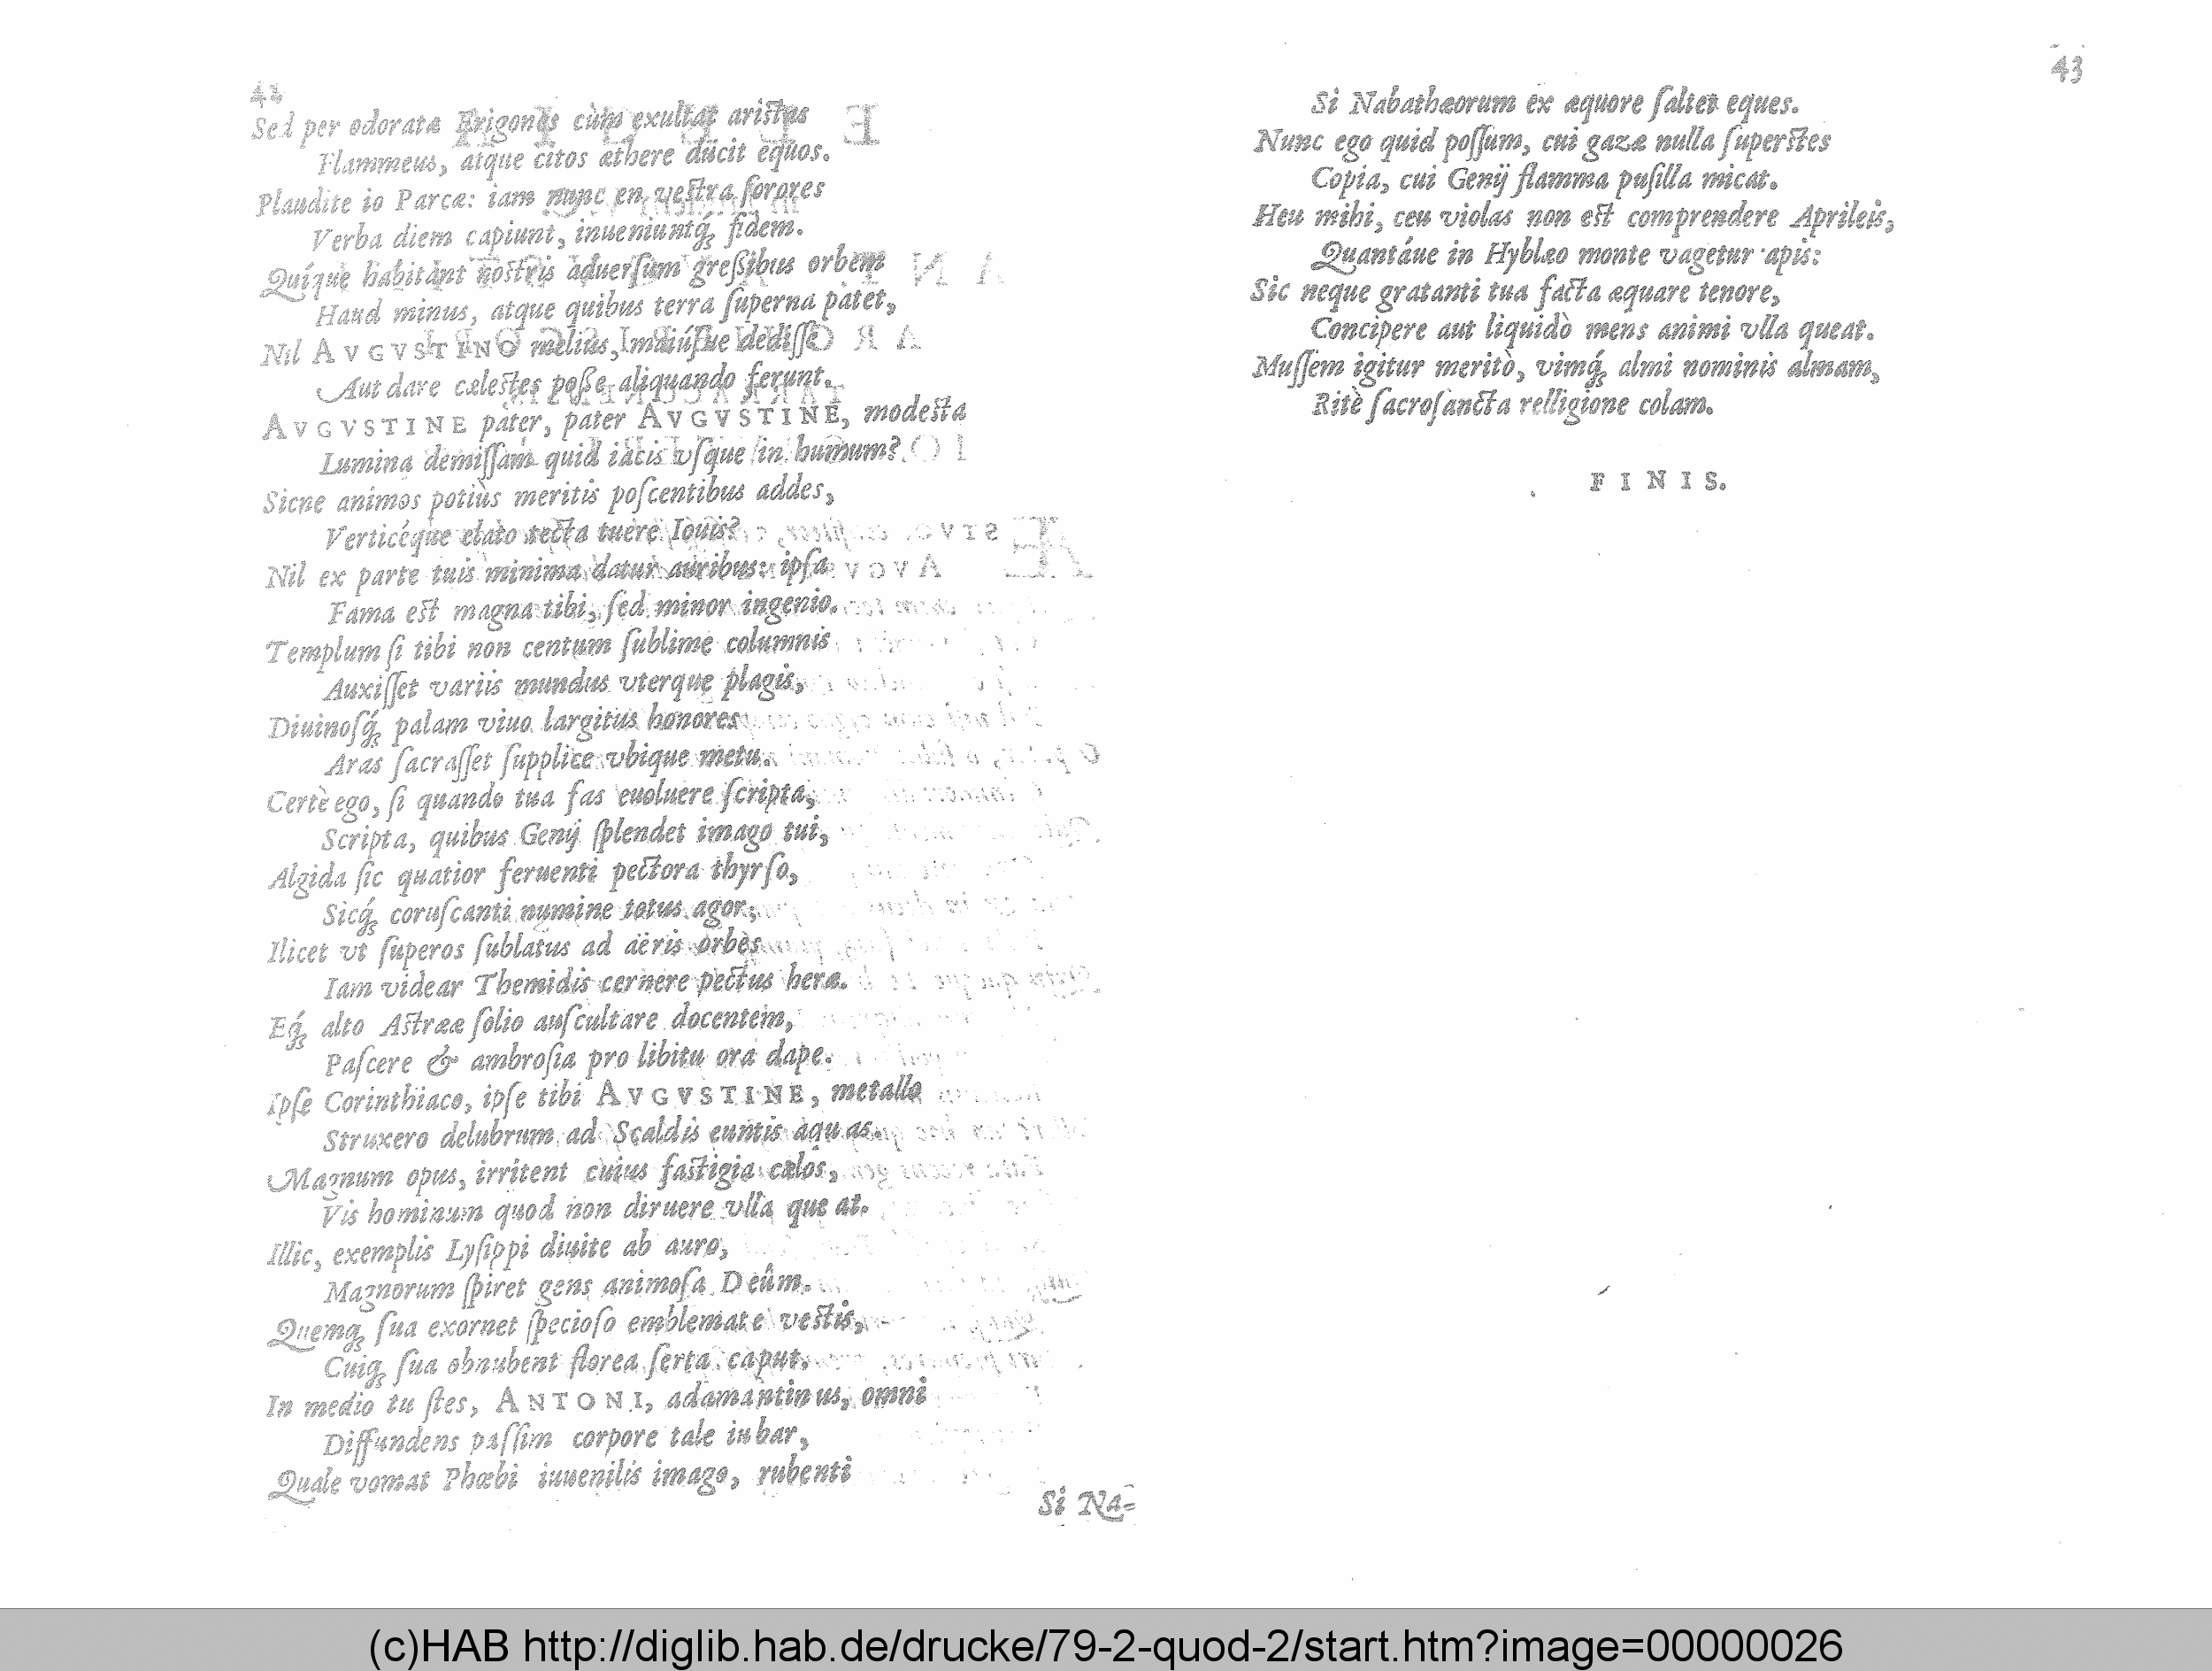 42
Sed per odoratæ Erigones cùm exultat aristas
Flammeus, atque citos æthere ducit equos.
Plaudite io Parcæ: iam nunc en vestra sorores
Verba diem capiunt, inueniuntq́; fidem.
Quíque habitant nostris aduersùm greßibus orbem
Haud minus, atque quibus terra superna patet,
Nil AVGVSTINO melius, maiúsue dedisse
Aut dare cælestes poße aliquando ferunt.
AVGVSTINE páter, pater AVGVSTINE, modesta
Lumina demissam quid iacis vsque in humum?
Sicne animos potiùs meritis poscentibus addes,
Verticéque elato tecta tuere Iouis?
Nil ex parte tuis minima datur auribus: ipsa
Fama est magna tibi, sed minor ingenio.
Templum si tibi non centum sublime columnis
Auxisset variis mundus vterque plagis,
Diuinosq́; palam viuo largitus honores
Aras sacrasset supplice vbique metu.
Certè ego, si quando tua fas euoluere scripta,
Scripta, quibus Genij splendet imago tui,
Algida sic quatior feruenti pectora thyrso,
Sicq́; coruscanti numine totus agor,
Ilicet vt superos sublatus ad aëris orbes
Iam videar Themidis cernere pectus heræ.
Eq́; alto Astrææ solio auscultare docentem,
Pascere & ambrosia pro libitu ora dape.
Ipse Corinthiaco, ipse tibi AVGVSTINE, metallo
Struxero delubrum ad Scaldis euntis aquas.
Magnum opus, irritent cuius fastigia cælos,
Vis hominum quod non diruere vlla queat.
Illic, exemplis Lysippi diuite ab auro,
Magnorum spiret gens animosa Deûm.
Quemq; sua exornet specioso emblemate vestis,
Cuiq; sua obnubent florea serta caput.
In medio tu stes, ANTONI, adamantinus, omni
Diffundens passim corpore tale iubar,
Quale vomat Phœbi iuuenilis imago, rubenti
Si Na-
43
Si Nabathæorum ex æquore saltet eques.
Nunc ego quid possum, cui gazæ nulla superstes
Copia, cui Genij flamma pusilla micat.
Heu mihi, ceu violas non est comprendere Aprileis,
Quantáue in Hyblæo monte vagetur apis:
Sic neque gratanti tua facta æquare tenore,
Concipere aut liquidò mens animi vlla queat.
Mussem igitur meritò, vimq́; almi nominis almam,
Ritè sacrosancta relligione colam.
FINIS.
(c)HAB http://diglib.hab.de/drucke/79-2-quod-2/start.htm?image=00000026